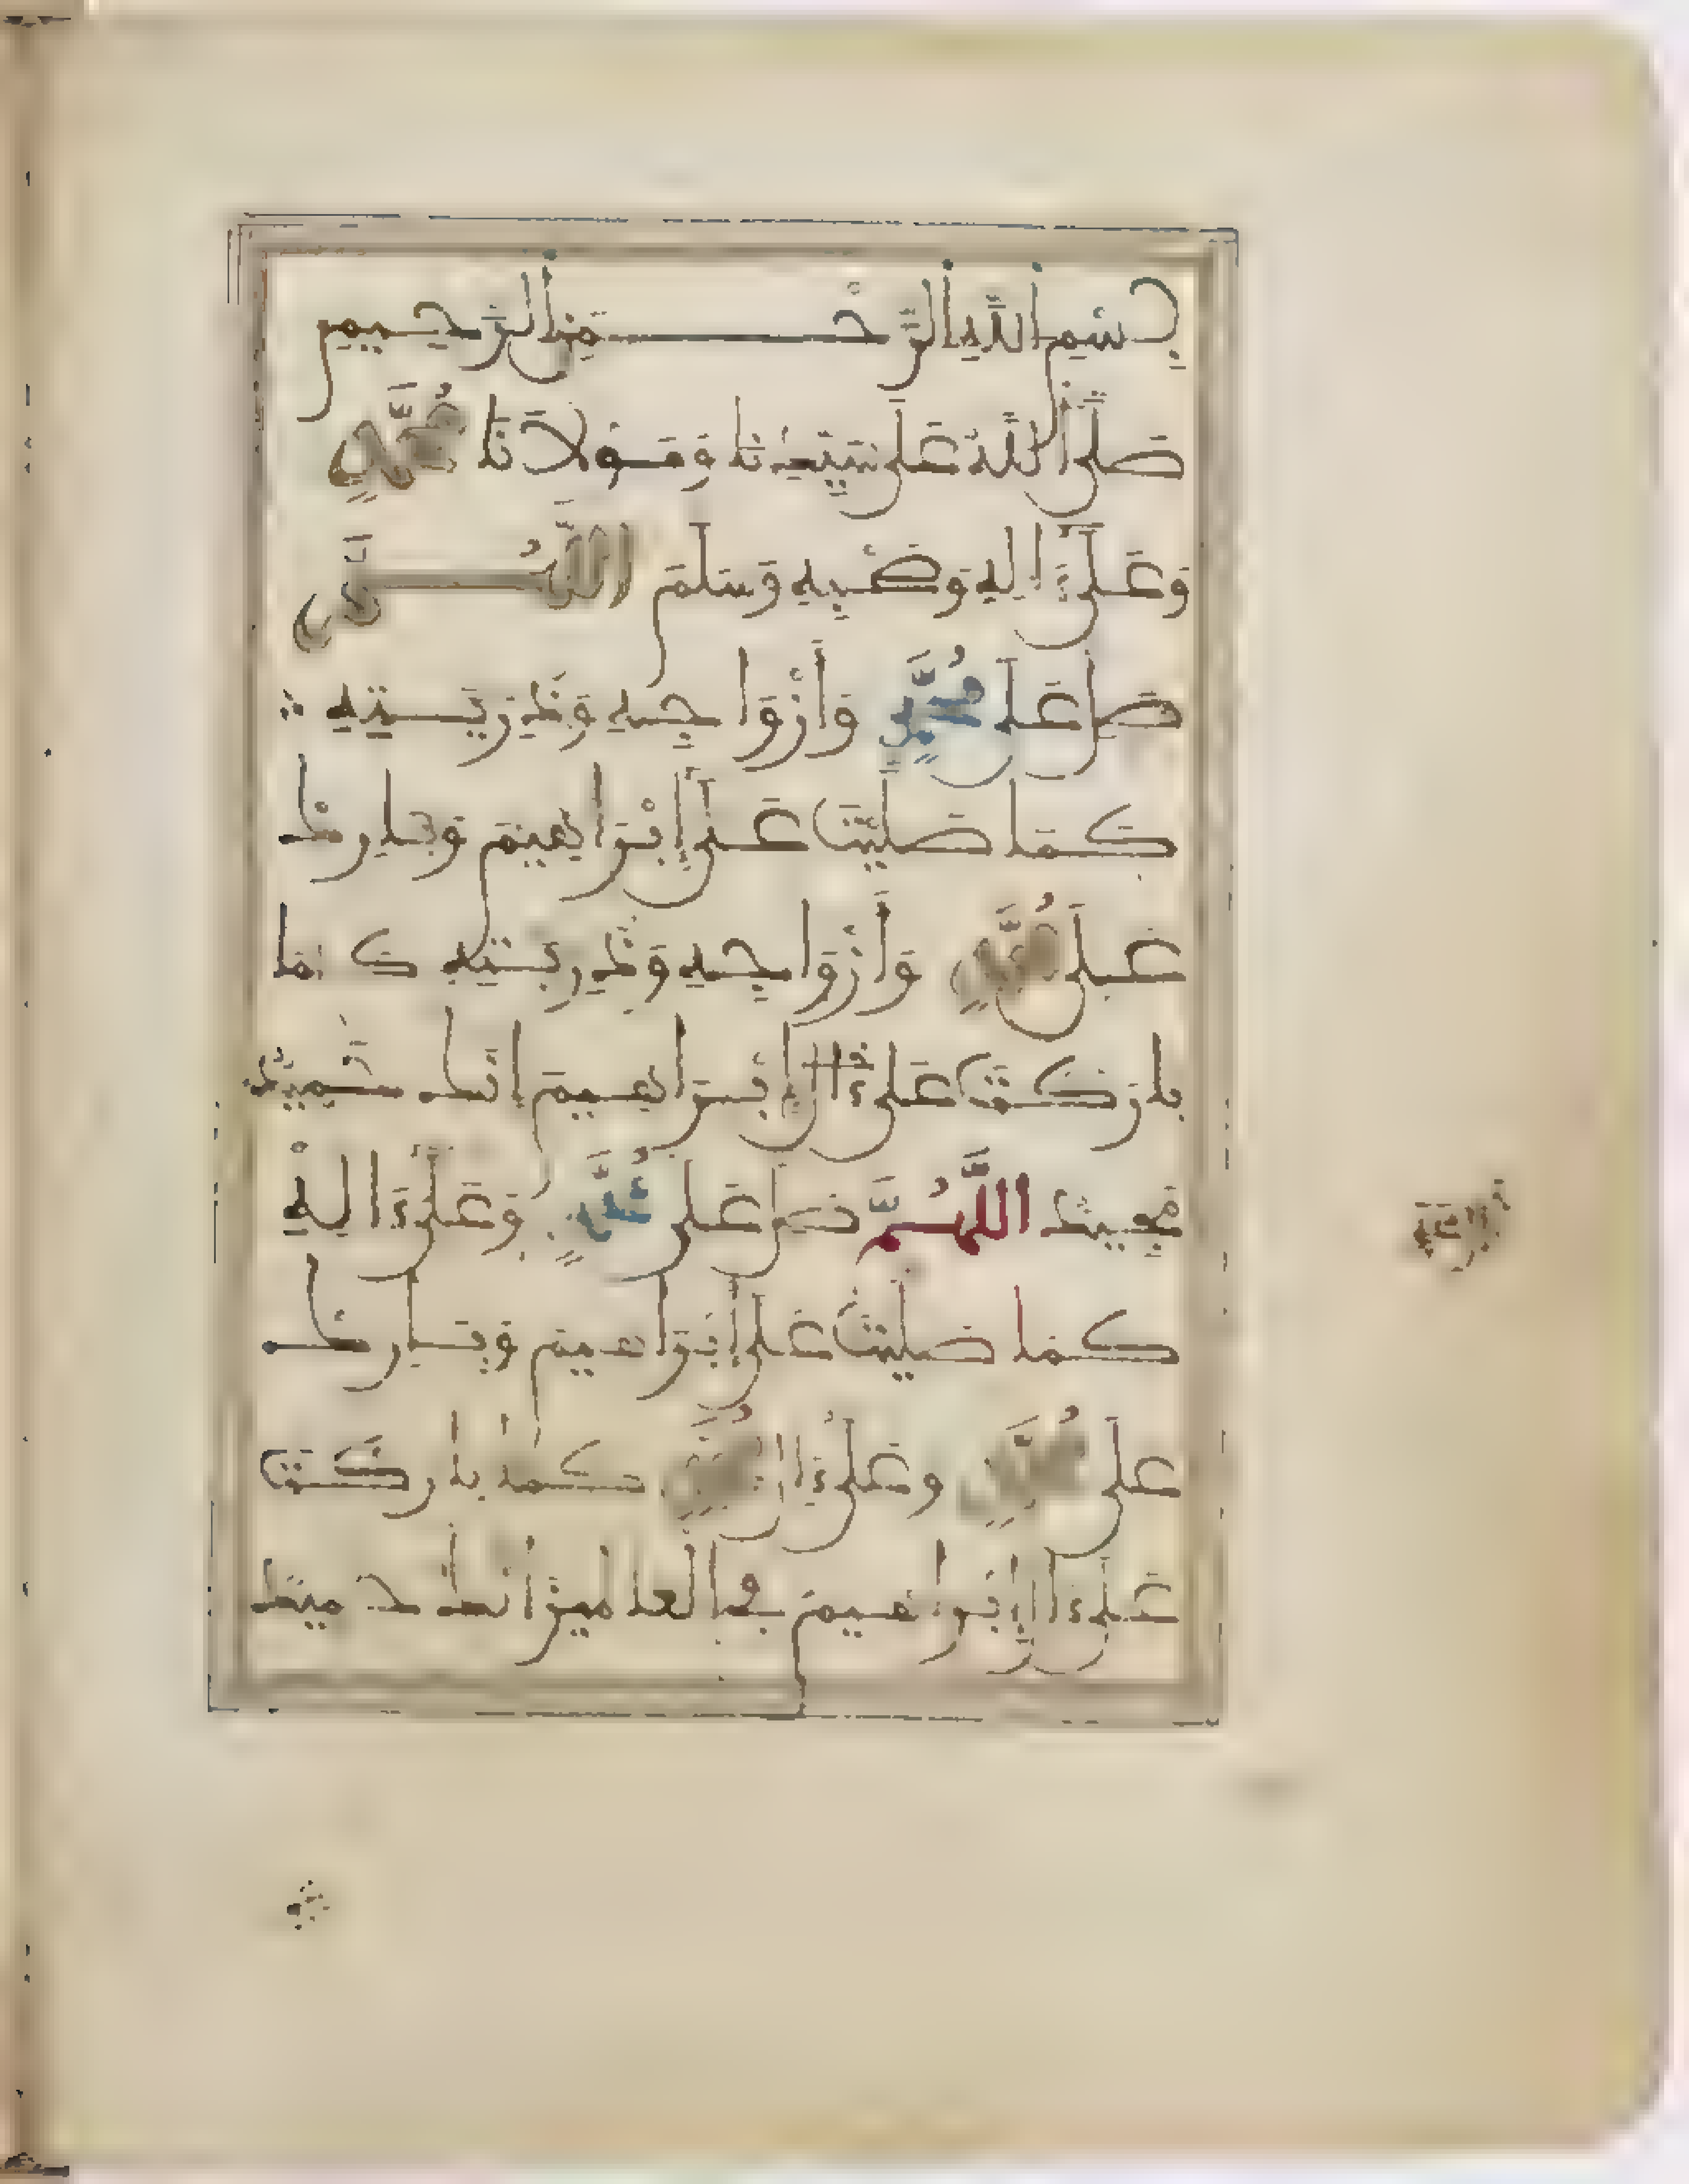 بِسْمِ اللَّهِ الرَّحْمَنِ الرَّحِيمِ
صَلَّى اللَّهُ عَلَى سَيِّدِنَا وَمَوْلَانَا مُحَمَّدٍ
وَعَلَى ءَالِهِ وَصَحْبِهِ وَسَلَّمَ اللَّهُمَّ
صَلِّ عَلَى مُحَمَّدٍ وَأَزْوَاجِهِ وَذُرِّيَّتِهِ
كَمَا صَلَّيْتَ عَلَى إِبْرَاهِيمَ وَبَارِكْ
عَلَى مُحَمَّدٍ وَأَزْوَاجِهِ وَذُرِّيَّتِهِ كَمَا
بَارَكْتَ عَلَى ءَالِ إِبْرَاهِيمَ إِنَّكَ حَمِيدٌ
مَجِيدٌ اللَّهُمَّ صَلِّ عَلَى مُحَمَّدٍ وَعَلَى ءَالِهِ
كَمَا صَلَّيْتَ عَلَى إِبْرَاهِيمَ وَبَارِكْ
عَلَى مُحَمَّدٍ وَعَلَى ءَالِ مُحَمَّدٍ كَمَا بَارَكْتَ
عَلَى ءَالِ إِبْرَاهِيمَ فِي الْعَالَمِينَ إِنَّكَ حَمِيدٌ